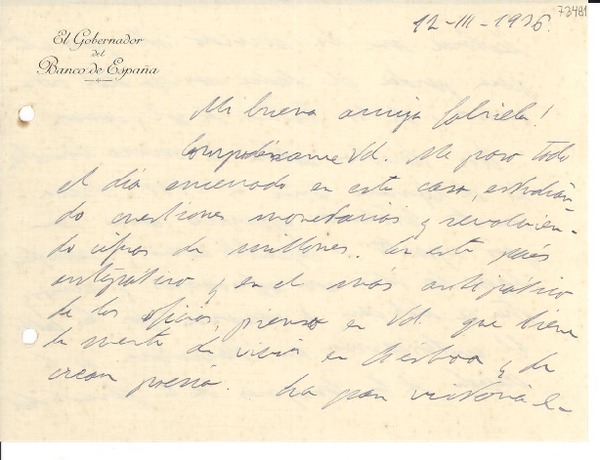 73481
12-III-1936.
El Gobernador
del
Banco de España
Mi buena amiga Gabriela!
Compadézcame Vd. Me paso todo
el día encerrado en esta casa, estudian-
do cuestiones monetarias y revolvien-
do cifras de millones. En este país
antipático y en el más antipático
de los oficios, pienso en Vd. que tiene
la suerte de vivir en Lisboa y de
crear poesía. La gran victoria e-